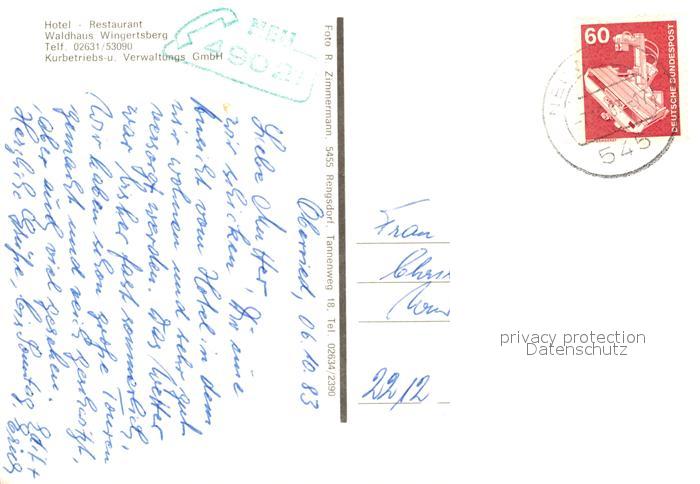 Hotel - Restaurant
Waldhaus Wingertsberg
Telf. 02631/53090
Kurbetriebs-u. Verwaltungs GmbH
NEU
4902
Foto R. Zimmermann, 5455 Rengsdorf, Tannenweg 18, Tel. 02634/2390
60
DEUTSCHE BUNDESPOST
NEU
545
06.10.83
Liebe Mutter, Dir eine
wir schicken
Ansicht vom Hotel in dem
wir wohnen und sehr gut
versorgt werden. Das Wetter
war bisher fast sommerlich,
Wir haben schon große Touren
gemacht und
aber auch viel gesehen.
Herzliche Grüße, bis Sonntag
Erich
Frau
22/2
privacy protection
Datenschutz